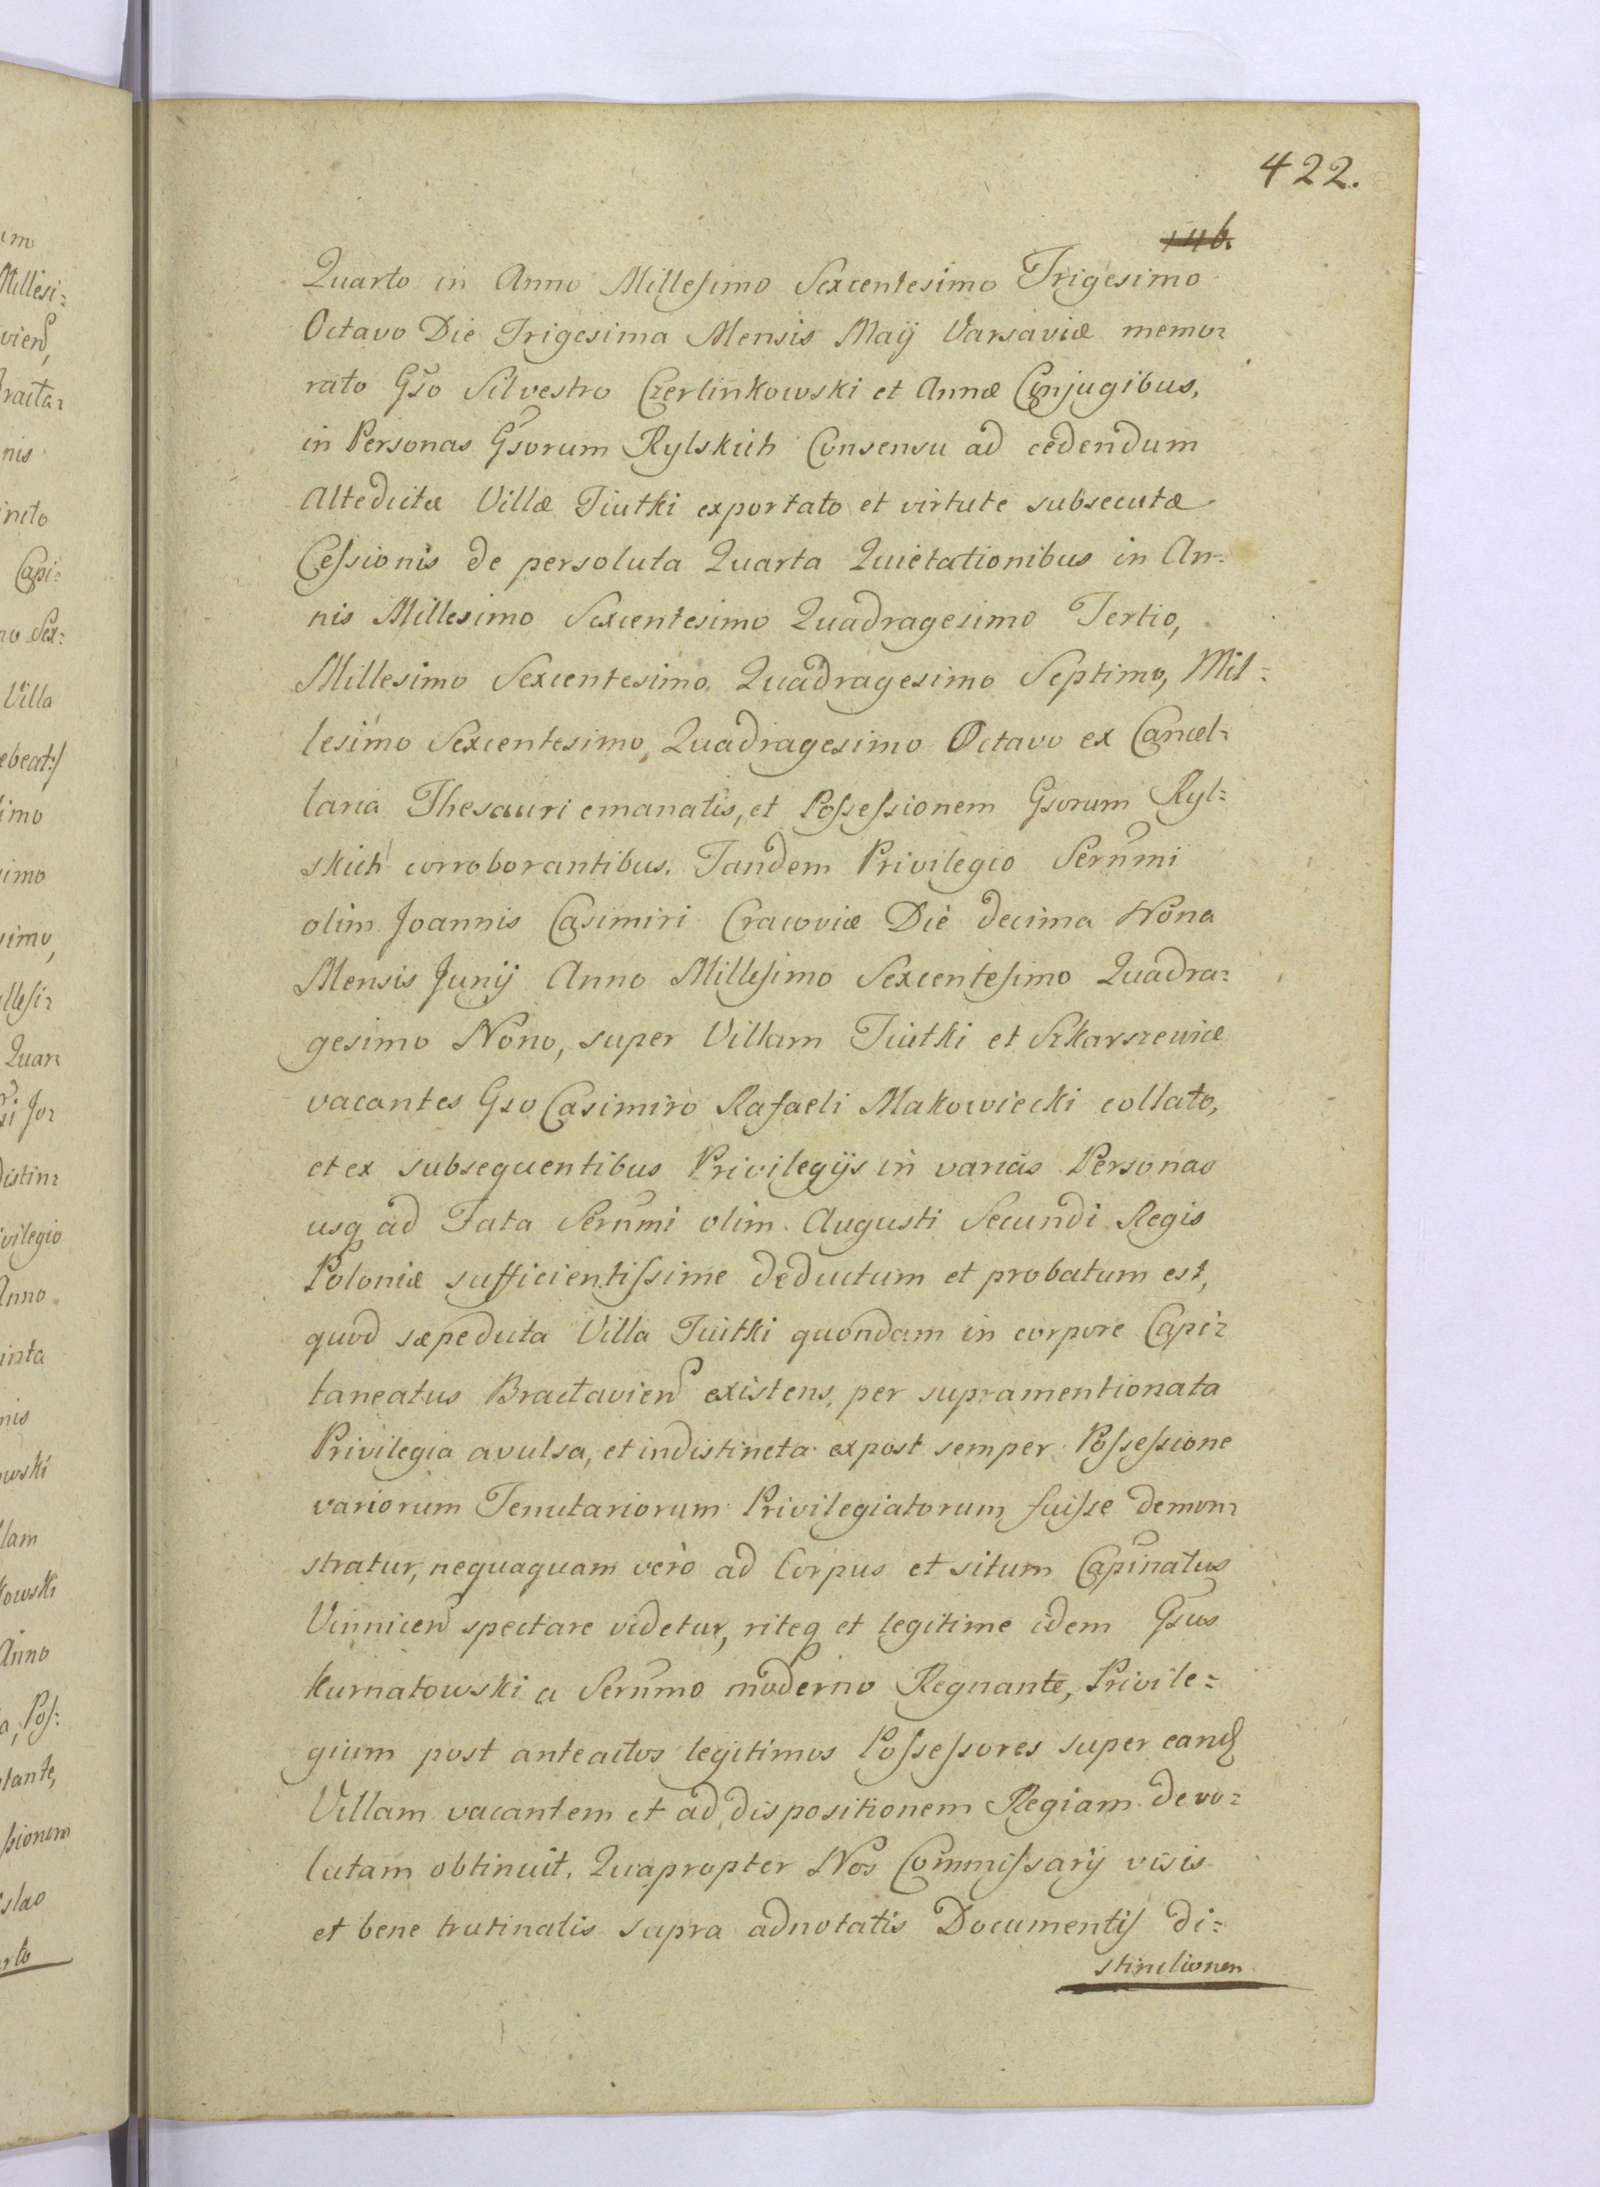 422.
146.
Quarto in Anno Millesimo Sexcentesimo Trigesimo
Octavo Die Trigesima Mensis Maij Varsaviæ memo=
rato Gso Silvestro Czerlinkowski et Annæ Conjugibus,
in Personas Gsorum Rylskich Consensu ad cedendum
Altedictæ Villæ Tiutki exportato et virtute subsecutæ
Cessionis de persoluta Quarta Quietationibus in An=
nis Millesimo Sexcentesimo Quadragesimo Tertio,
Millesimo Sexcentesimo Quadragesimo Septimo, Mil=
lesimo Sexcentesimo Quadragesimo Octavo ex Cancel=
laria Thesauri emanatis, et Possessionem Gsorum Ryl=
skich corroborantibus. Tandem Privilegio Sernmi
olim Joannis Casimiri Cracoviæ Die decima Nona
Mensis Junij Anno Millesimo Sexcentesimo Quadra=
gesimo Nono, super Villam Tiutki et Szkarszewice
vacantes Gso Casimiro Rafaeli Makowiecki collato,
et ex subsequentibus Privilegijs in varias Personas
usq ad Fata Sernmi olim Augusti Secundi Regis
Poloniæ sufficientissime deductum et probatum est,
quod sæpedicta Villa Tiutki quondam in corpore Capi=
taneatus Braclavien existens, per supramentionata
Privilegia avulsa, et indistincta expost semper Possessione
variorum Tenutariorum Privilegiatorum fuisse demon=
stratur, nequaquam vero ad Corpus et situm Capinatus
Vinnicen spectare videtur, riteq et legitime idem Gsus
Kurnatowski a Sernmo moderno Regnante, Privile=
gium post anteactos legitimos Possessores super eand
Villam vacantem et ad dispositionem Regiam devo=
lutam obtinuit. Quapropter Nos Commissarij visis
et bene trutinatis supra adnotatis Documentis di=
stinctionen